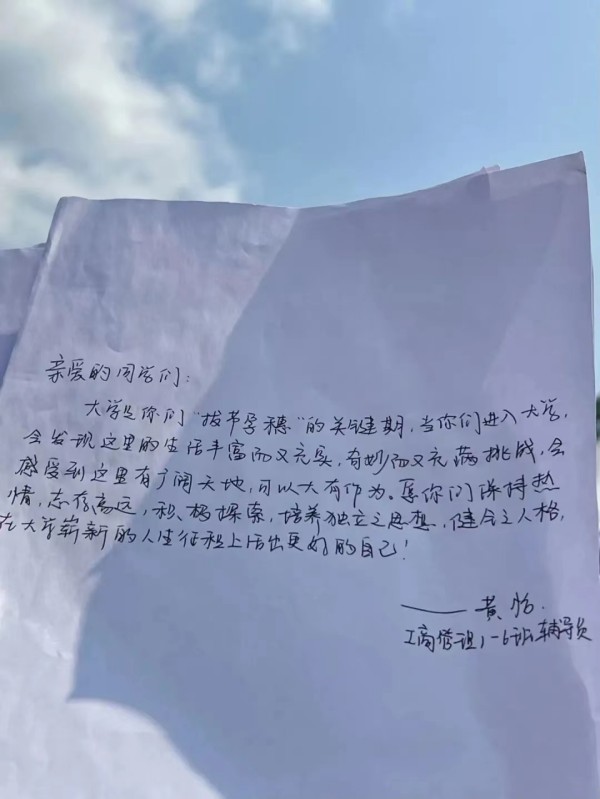 亲爱的同学们：
大学是你们“拔节孕穗”的关键期，当你们进入大学，
会发现这里的生活丰富而又充实，奇妙而又充满挑战，会
感受到这里有广阔天地，可以大有作为。愿你们保持热
情，志存高远，积极探索，培养独立之思想，健全之人格，
在大学崭新的人生征程上活出更好的自己！
——黄怡
工商管理1-6班辅导员